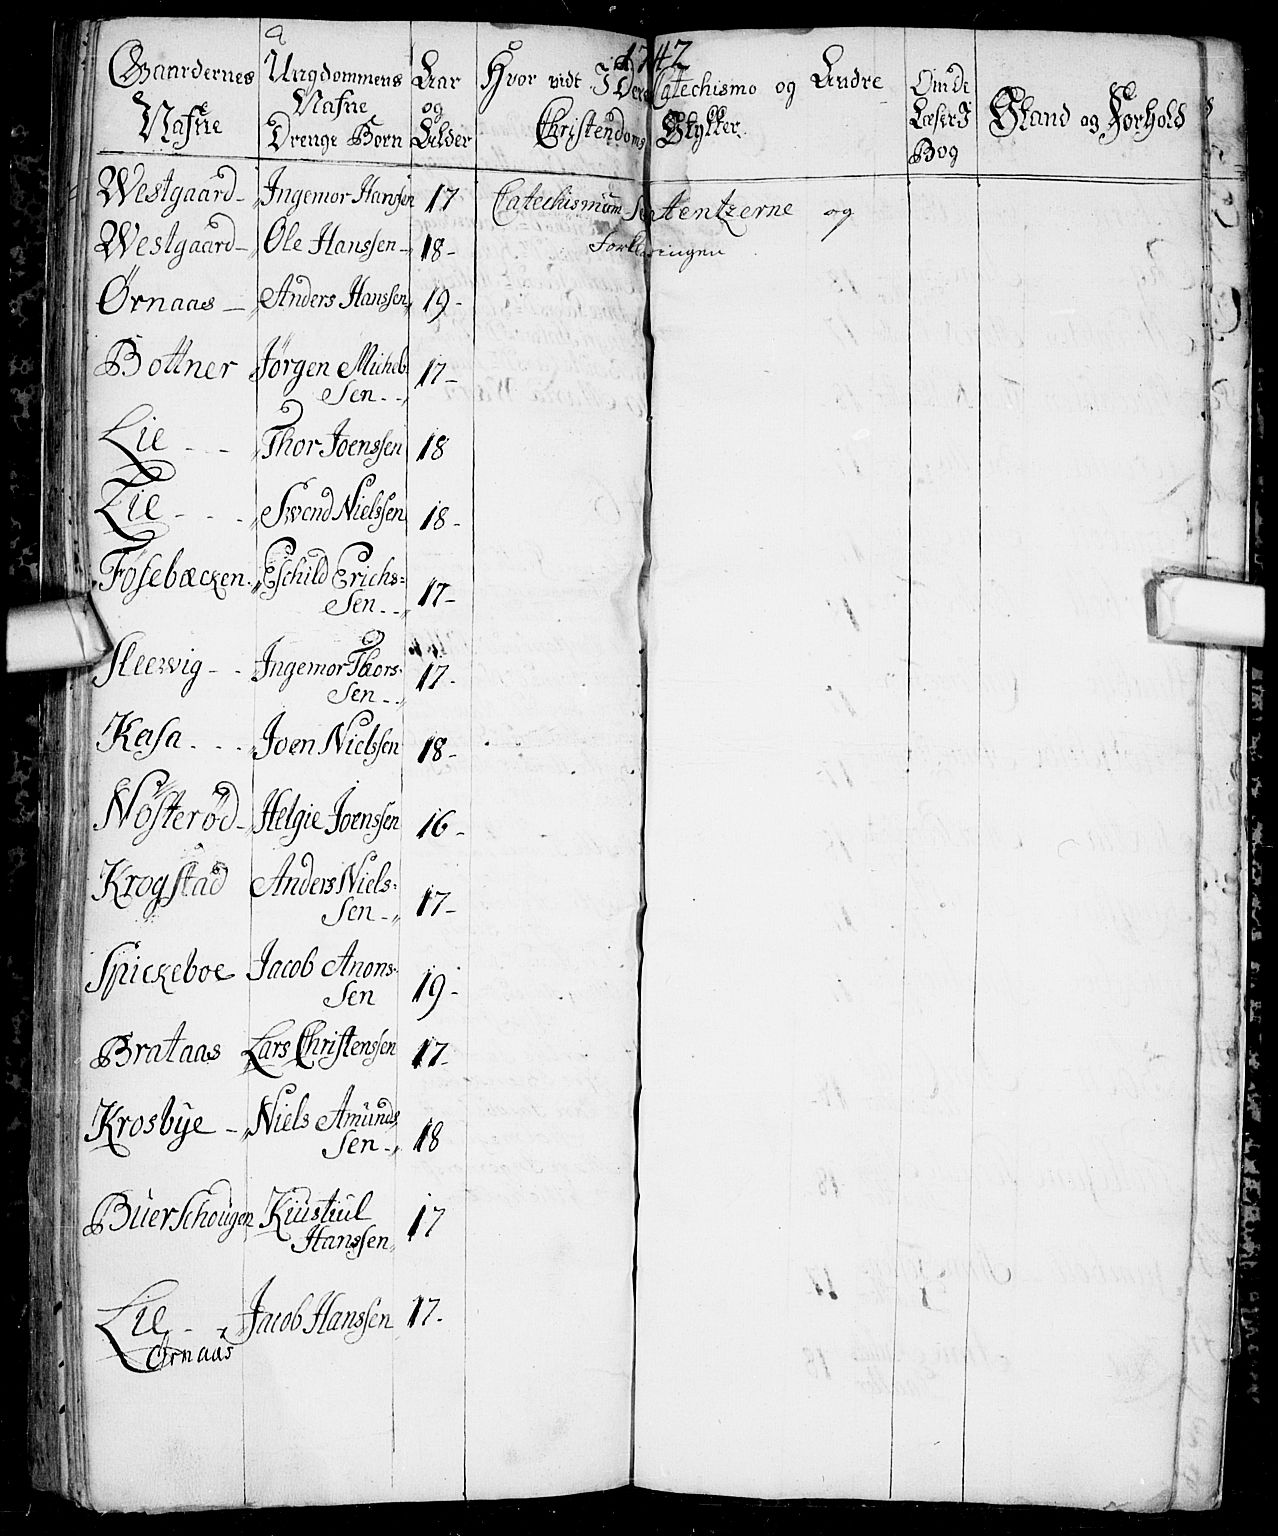 1742
Gaardernes Nafne
Ungdommens Nafne Drenge Børn
Aar og Alder
Hvor vidt I Deres Catechismo og Andre Christendoms Stykker
Om de Læser I Bog
Stand og Forhold
Westgaard - Ingemor Hanssen 17 Catechismum Sententzerne og
Westgaard - Ole Hanssen - 18 - Forklaringen
Ørnaas - Anders Hanssen 19 -
Bottner Jørgen Michel
Sen - - 17 -
Lie - - - Thor Joenssen 18
Lie - - - Swend Nielssen 18 -
Fosebæcken - Eschild Erichs=
Sen - - 17 -
Sleewig - - Ingemor Thors=
Sen - - 17 -
Kasa - - - Joen Nielssen 18 -
Nösterød - Helgie Joenssen 16 -
Krogstad Anders Niels=
Sen - 17 -
Spickeboe Jacob Anons=
Sen 19 -
Brataas Lars Christenssen 17 -
Krosbÿe - Niels Amunds
Sen - 18
Buerschougen Kiustiul
Hanssen 17
Lie - - Jacob Hanssen 17 -
Ørnaas